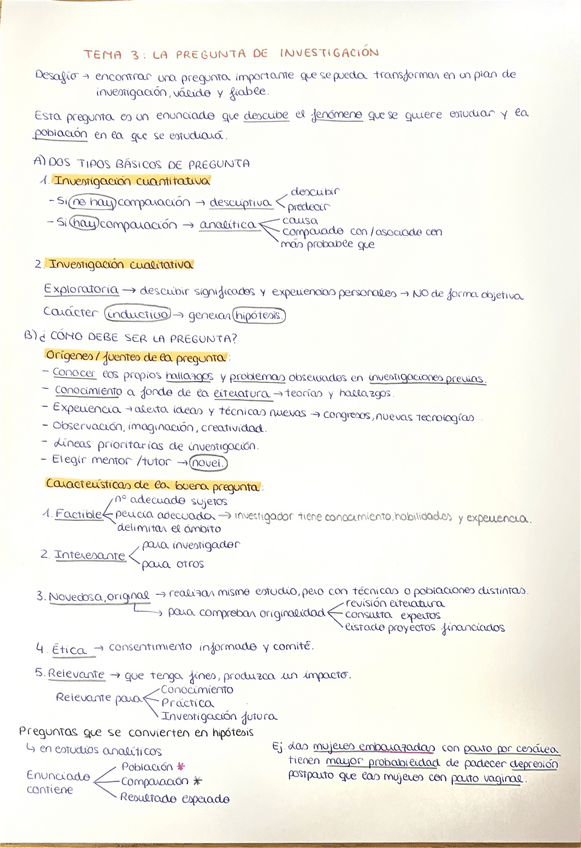 TEMA 3: LA PREGUNTA DE INVESTIGACIÓN
Desafío → encontrar una pregunta importante que se pueda transformar en un plan de
investigación, válido y fiable.
Esta pregunta es un enunciado que describe el fenómeno que se quiere estudiar y la
población en la que se estudiará.
A) DOS TIPOS BÁSICOS DE PREGUNTA
1. Investigación cuantitativa
- Si no hay comparación → descriptiva
describir
predecir
- Si hay comparación → analítica
causa
comparado con/asociado con
más probable que
2. Investigación cualitativa
Exploratoria → describir significados y experiencias personales → NO de forma objetiva
Carácter inductivo → generar hipótesis
B) ¿CÓMO DEBE SER LA PREGUNTA?
Orígenes/fuentes de la pregunta:
- Conocer los propios hallazgos y problemas observados en investigaciones previas.
- Conocimiento a fondo de la literatura → teorías y hallazgos.
- Experiencia → alerta ideas y técnicas nuevas → congresos, nuevas tecnologías...
- Observación, imaginación, creatividad.
- Líneas prioritarias de investigación.
- Elegir mentor/tutor → novel.
Características de la buena pregunta:
1. Factible
nº adecuado sujetos
pericia adecuada → investigador tiene conocimiento, habilidades y experiencia.
delimitar el ámbito
2. Interesante
para investigador
para otros
3. Novedosa, original → realizar mismo estudio, pero con técnicas o poblaciones distintas.
→ para comprobar originalidad
revisión literatura
consulta expertos
listado proyectos financiados
4. Ética → consentimiento informado y comité.
5. Relevante → que tenga fines, produzca un impacto.
Relevante para
Conocimiento
Práctica
Investigación futura
Preguntas que se convierten en hipótesis
↳ en estudios analíticos
Enunciado contiene
Población *
Comparación *
Resultado esperado
Ej Las mujeres embarazadas con parto por cesárea
tienen mayor probabilidad de padecer depresión
postparto que las mujeres con parto vaginal.